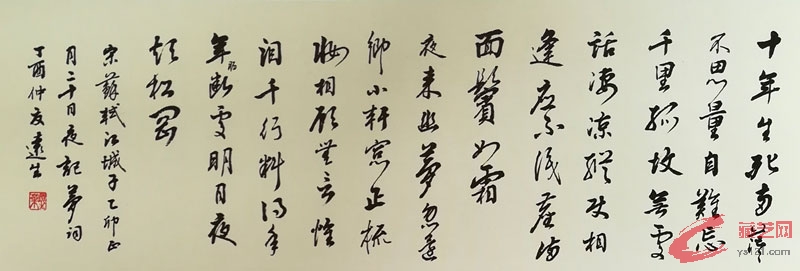 十年生死两茫
不思量自難忘
千里孤坟無处
話凄凉縱使相
逢應不識塵满
面鬢如霜
夜来幽夢忽還
鄉小軒窗正梳
妝相顾無言惟
泪千行料得年
年腸断处明月夜
短松冈
宋蘇軾江城子乙卯正
月二十日夜記夢詞
丁酉仲夏遠生
藏艺网